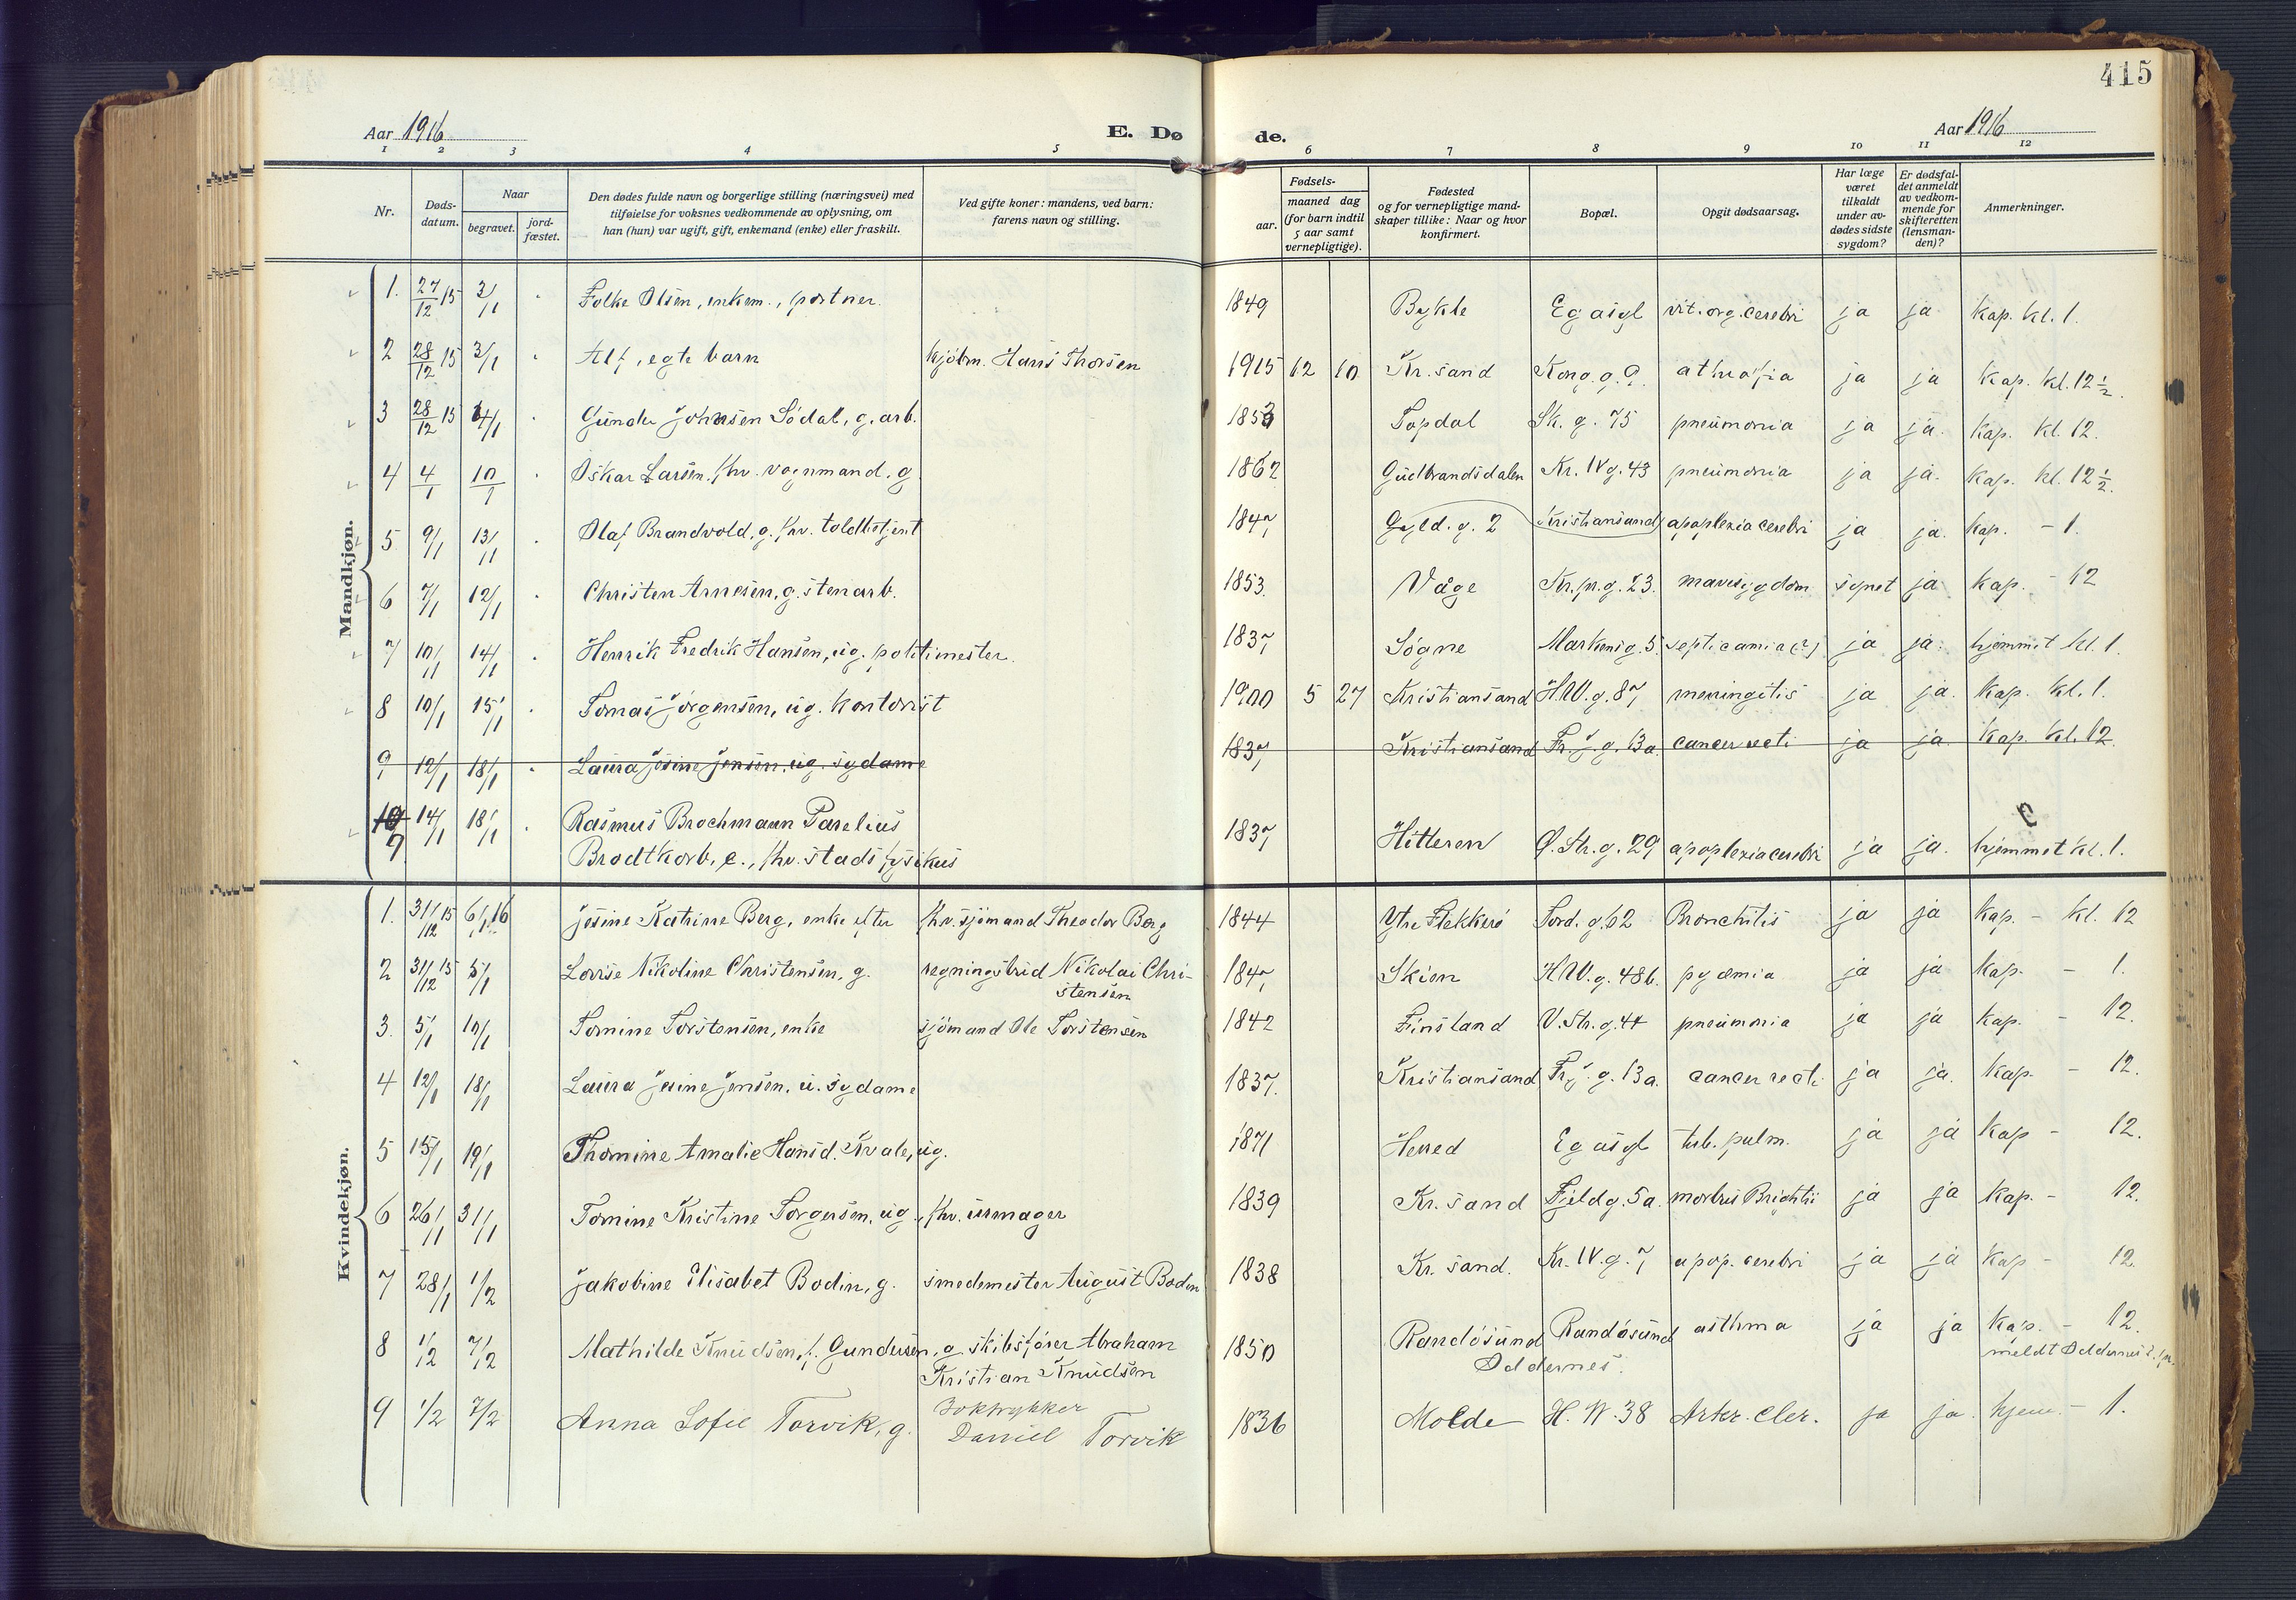 415
Aar 1916 E. Døde. Aar 1916
1 2 3 4 5 6 7 8 9 10 11 12
Nr. Døds-datum. Naar begravet. jord-fæstet. Den dødes fulde navn og borgerlige stilling (næringsvei) med tilføielse for voksnes vedkommende av oplysning, om han (hun) var ugift, gift, enkemand (enke) eller fraskilt. Ved gifte koner: mandens, ved barn: farens navn og stilling. Fødsels- aar. maaned dag (for barn indtil 5 aar samt vernepligtige). Fødested og for vernepligtige mand-skaper tillike: Naar og hvor konfirmert. Bopæl. Opgit dødsaarsag. Har læge været tilkaldt under av-dødes sidste sygdom? Er dødsfal-det anmeldt av vedkom-mende for skifteretten (lensman-den)? Anmerkninger.
Mandkjøn.
1. 27/12 15 3/1 Folke Olsen, enkem., portner. 1849 Bykle Eg asyl vit. org. cerebri ja ja Kap. kl. 1.
2 28/12 15 3/1 Alf, egte barn kjøbm. Hans Thorsen 1915 12 10 Kr.sand Kong. g. 9. athrofia ja ja Kap. kl. 12½.
3 28/12 15 4/1 Gunder Johnsen Sødal, g. arb. 1853 Topdal Sk. g. 75 pneumonia ja ja. Kap. kl. 12.
4 4/1 10/1 Oskar Larsen, fhv. vognmand, g 1862 Gudbrandsdalen Kr. IV g. 43 pneumonia ja ja. Kap. kl. 12½.
5 9/1 13/1 Olaf Brandvold, g. fhv. toldbetjent 1847 Gyld. g. 2 Kristiansand apoplexia cerebri ja ja. Kap. - 1.
6 7/1 12/1 Christen Arnesen, g. stenarb. 1853. Våge Kr. pr. g. 23. mavesygdom synet ja Kap. - 12
7 10/1 14/1 Henrik Fredrik Hansen, ug. politimester. 1837 Søgne Markensg. 5 septicamia (?) ja ja. hjemmet kl. 1.
8 10/1 15/1 Tomas Jørgensen, ug. kontorist 1900 5 27 Kristiansand H.W. g. 87 meningitis ja ja. Kap. kl. 1.
9 12/1 18/1 Laura Jesine Jensen, ug. sydame 1837 Kristiansand Fr. J. g. 13a cancer recti ja ja. Kap. kl. 12.
10 9 14/1 18/1 Rasmus Brochmann Parelius
Brodtkorb, e., fhv. stadsfysikus 1837 Hitteren Ø. Str. g. 29 apoplexia cerebri ja ja. hjemmet kl. 1.
Kvindekjøn.
1. 31/12 15 6/1 16 Jesine Katrine Berg, enke efter fhv. sjømand Theodor Berg 1844 Ytre Flekkerø Tord. g. 62 Bronchitis ja ja Kap. - kl. 12
2 31/12 15 5/1 Lovise Nikoline Christensen, g. Nikolai Chri-
stensen 1847 Skien H.W. g. 48b. pyæmia ja ja Kap. - 1.
3. 5/1 10/1 Tomine Torstensen, enke sjømand Ole Torstensen 1842 Finsland V. Str. g. 44 pneumonia ja ja Kap. - 12.
4 12/1 18/1 Laura Jesine Jensen, u. sydame 1837. Kristiansand Fr. J. g. 13a. cancer recti ja ja. Kap. - 12.
5 15/1 19/1 Thomine Amalie Hansd. Kvale, ug. 1871 Hered Eg asyl tub. pulm. ja ja Kap - 12.
6 26/1 31/1 Tomine Kristine Torgersen, ug., fhv. urmager 1839 Kr.sand Fjeldg. 5a. morbus Brightii ja ja Kap. - 12.
7 28/1 1/2 Jakobine Elisabet Bodin, g. smedemester August Bodin 1838 Kr.sand. Kr. IV. g. 7 apop. cerebri ja ja Kap - 12.
8 1/2 7/2 Mathilde Knudsen, f. Gundersen, g skibsfører Abraham
Kristian Knudsen 1850 Randøsund Oddernes. Randøsund asthma ja ja Kap. - 12.
meldt Oddernes
9 1/2 7/2 Anna Sofie Torvik, g. Boktrykker
Daniel Torvik 1836 Molde H. W. 38 Arter. Cler. ja ja hjem. - 1.